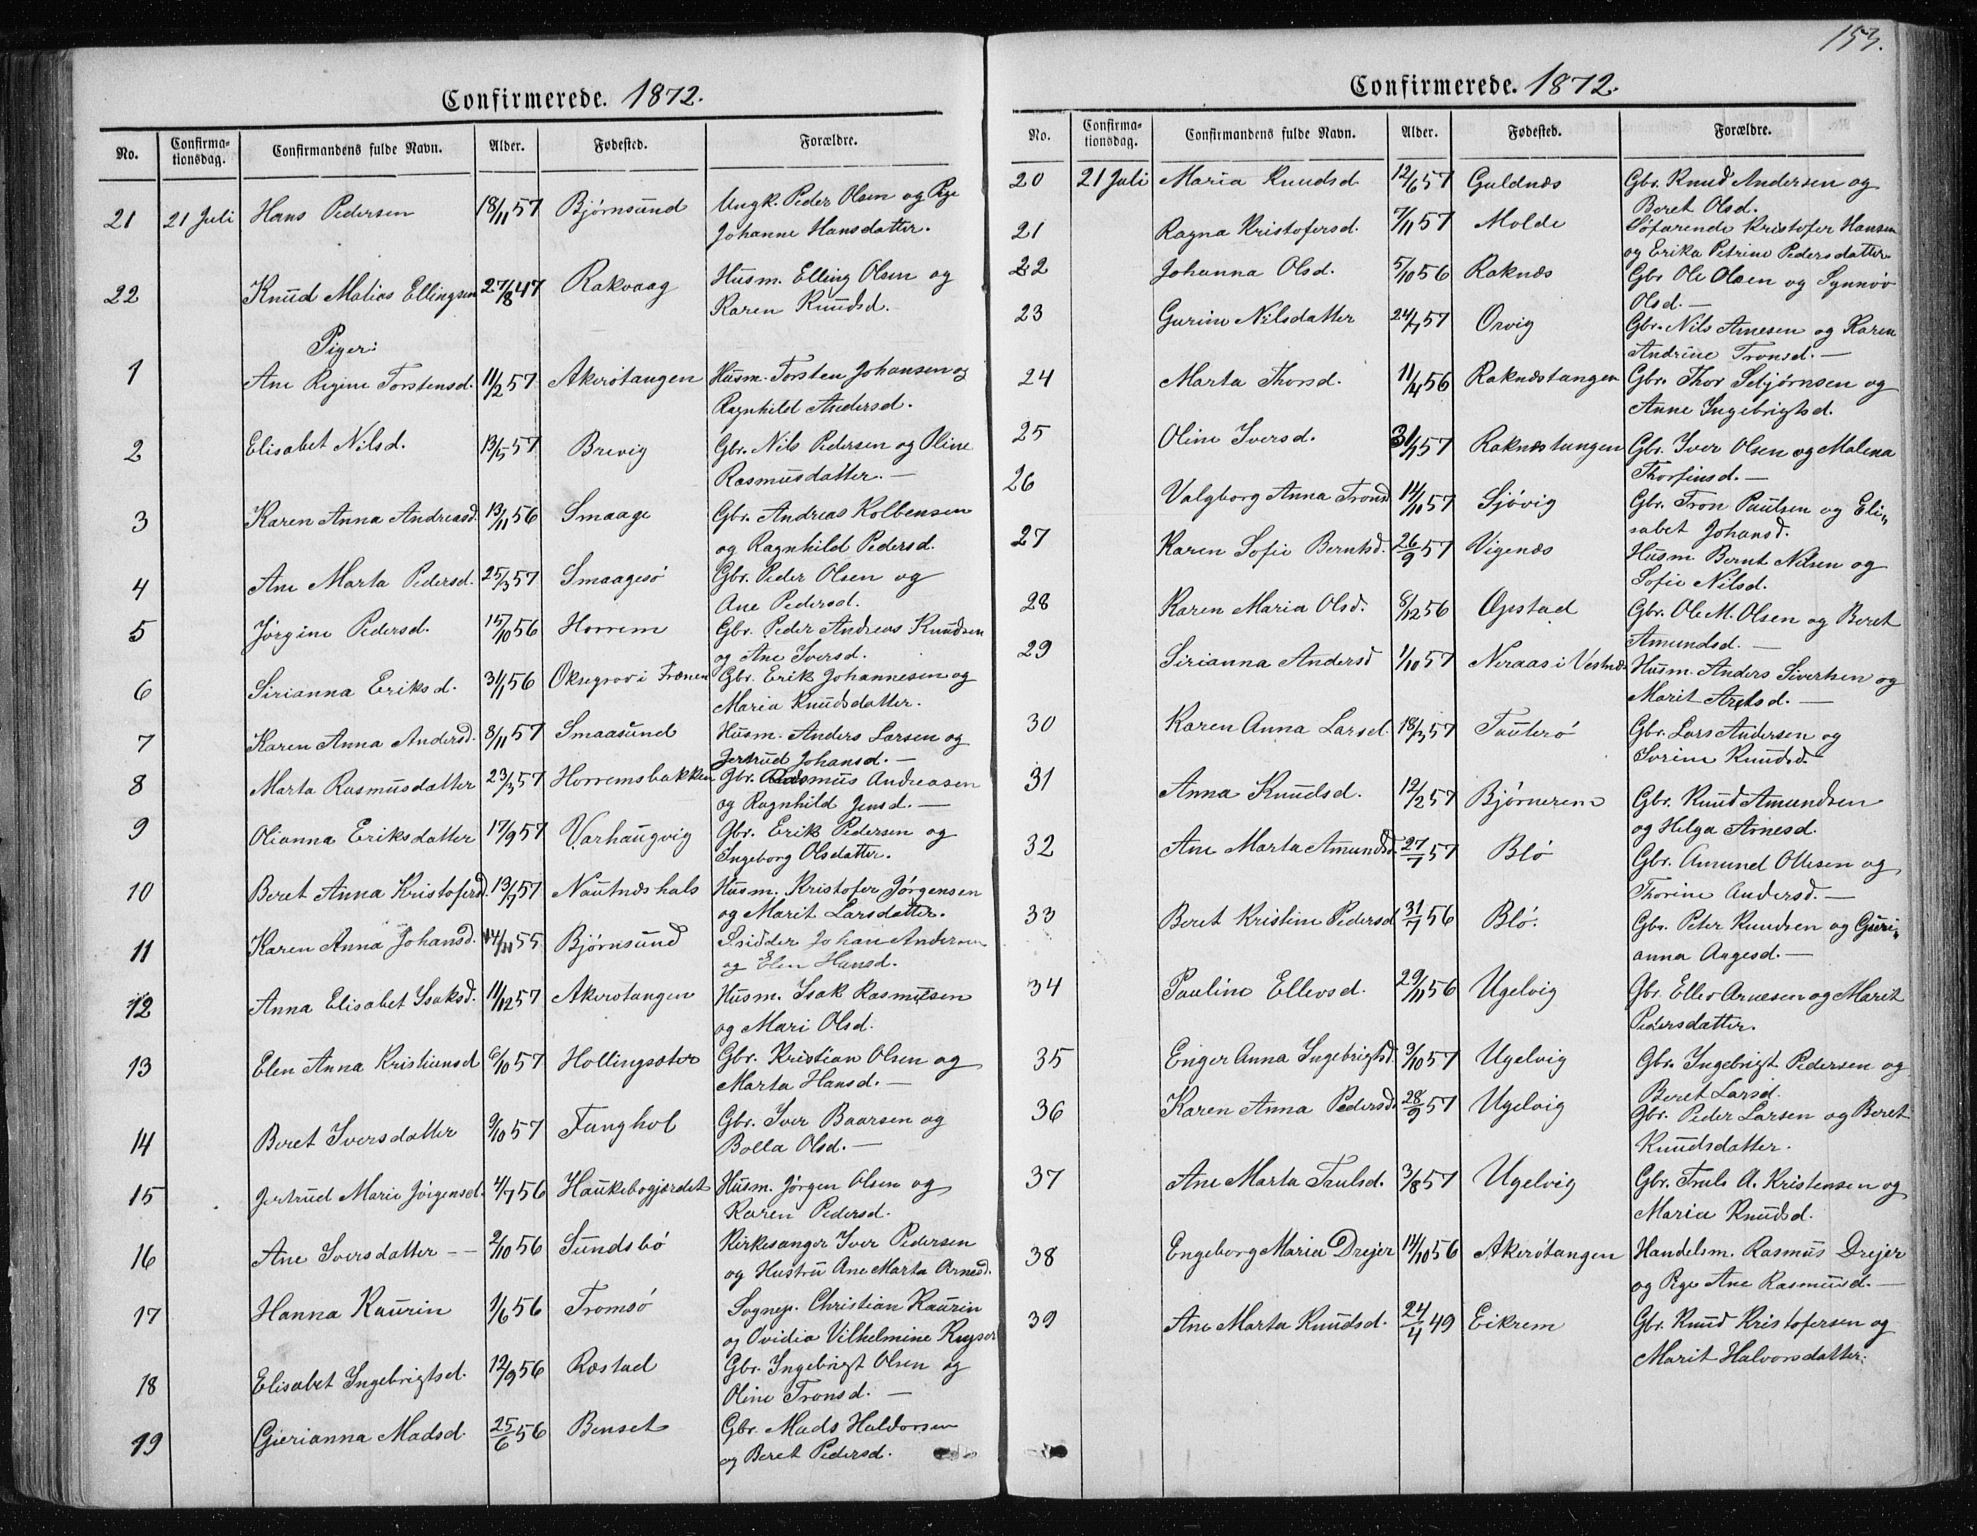 Confirmerede. 1872.
No. Confirma-tionsdag. Confirmandens fulde Navn. Alder. Fødested. Forældre.
21 21 Juli Hans Pedersen 18/11 57 Bjørnsund Ungk. Peder Olsen og Pige
Johanne Hansdatter.
22 Knud Matias Ellingsen 27/8 47 Rakvaag Husm. Elling Olsen og
Karen Knudsd.
Piger:
1 Ane Regine Torstensd. 11/2 57 Akerøtangen Husm. Torsten Johansen og
Ragnhild Andersd.
2 Elisabet Nilsd. 13/5 57 Brevig Gbr. Nils Pedersen og Oline
Rasmusdatter. —
3 Karen Anna Andreasd. 13/11 56 Smaage Gbr. Andreas Kolbensen
og Ragnhild Pedersd.
4 Ane Marta Pedersd. 25/3 57 Smaagesø Gbr. Peder Olsen og
Ane Pedersd.
5 Jørgine Pedersd. 15/10 56 Horrem Gbr. Peder Andreas Knudsen
og Ane Iversd.
6 Sirianna Eriksd. 31/1 56 Oksegrov i Frænen Gbr. Erik Johannesen og
Maria Knudsdatter.
7 Karen Anna Andersd. 8/11 57 Smaasund Husm. Anders Larsen og
Jertrud Johansd. —
8 Marta Rasmusdatter 23/3 57 Horremsbakken Gbr. Rasmus Andreasen
og Ragnhild Jensd. —
9 Olianna Eriksdatter 17/9 57 Varhaugvig Gbr. Erik Pedersen og
Ingeborg Olsdatter.
10 Beret Anna Kristofersd. 13/7 57 Nautneshals Husm. Kristofer Jørgensen
og Marit Larsdatter.
11 Karen Anna Johansd. 14/11 55 Bjørnsund Strsidder Johan Andersen
og Elen Hansd.
12 Anna Elisabet Isaksd. 11/12 57 Akerøtangen Husm. Isak Rasmusen
og Mari Olsd.
13 Elen Anna Kristiansd 6/10 57 Hollingsster Gbr. Kristian Olsen og
Marta Hansd. —
14 Beret Iversdatter 9/10 57 Tunghol Gbr. Iver Baarsen og
Bolla Olsd. —
15 Jertrud Marie Jörgensd. 4/7 56 Haukebøgjærdet Husm. Jörgen Olsen og
Karen Pedersd.
16 Ane Iversdatter -- 2/10 56 Sundsbö Kirkesanger Iver Pedersen
og Hustru Ane Marta Arnesd.
17 Hanna Kaurin 1/6 56 Tromsö Sognep. Christian Kaurin
og Ovidia Vilhelmine Kyser
18 Elisabet Ingebrigtsd. 12/9 56 Røstad Gbr. Ingebrigt Olsen og
Oline Tronsd. —
19 Gjerianna Madsd. 25/6 56 Benset Gbr. Mads Haldorsen
og Beret Pedersd.
153.
Confirmerede. 1872.
No. Confirma-tionsdag. Confirmandens fulde Navn. Alder. Fødested. Forældre.
20 21 Juli Maria Knudsd 12/6 57 Guldnæs Gbr. Knud Andersen og
Beret Olsd.
21 Ragna Kristofersd. 7/11 57 Molde Søfarende Kristofer Hansen
og Erika Petrine Pedersdatter
22 Johanna Olsd. 5/10 56 Raknæs Gbr Ole Olsen og Synnöv
Olsd. —
23 Gurine Nilsdatter 24/7 57 Orvig Gbr. Nils Arnesen og Karen
Andrine Tronsd. —
24 Marta Thorsd. 11/4 56 Raknæstangen Gbr. Thor Sebjørnsen og
Anne Ingebrigtsd.
25 Oline Iversd. 31/7 57 Raknæstangen Gbr. Iver Olsen og Malena
Thorfinsd. —
26 Valgborg Anna Tronsd 14/11 57 Sjövig Gbr. Tron Paulsen og Eli-
sabet Johansd.
27 Karen Sofie Berntsd. 26/9 57 Vigenæs Husm. Bernt Nilsen og
Sofie Nilsd.
28 Karen Maria Olsd. 8/12 56 Opstad Gbr. Ole M. Olsen og Beret
Amundsd. —
29 Sirianna Andersd 1/10 57 Neraas i Vestnæs Husm. Anders Sivertsen og
Marit Arntsd. —
30 Karen Anna Larsd. 18/3 57 Tauterö Gbr. Lars Andersen og
Sorine Knudsd.
31 Anna Knudsd. 12/2 57 Bjørnerem Gbr. Knud Amundsen
og Helga Arnesd.
32 Ane Marta Amundsd. 27/7 57 Blö Gbr. Amund Ollesen og
Thorine Andersd. —
33 Beret Kristine Pedersd 31/7 56 Blö. Gbr. Peter Knudsen og Guri-
anna Aagesd. —
34 Pauline Ellevsd. 29/11 56 Ugelvig Gbr. Ellev Arnesen og Marit
Pedersdatter.
35 Enger Anna Ingebrigtsd. 3/10 57 Ugelvig Gbr. Ingebrigt Pedersen og
Beret Larsd.
36 Karen Anna Pedersd. 28/9 57 Ugelvig Gbr. Peder Larsen og Beret
Knudsdatter.
37 Ane Marta Trulsd. 3/8 57 Ugelvig Gbr. Truls A. Kristensen og
Maria Knudsd.
38 Engeborg Maria Drejer 14/10 56 Akerötangen Handelsm. Rasmus Drejer
og Pige Ane Rasmusd. —
39 Ane Marta Knudsd. 24/4 49 Eikrem Gbr. Knud Kristofersen og
Marit Halvorsdatter.